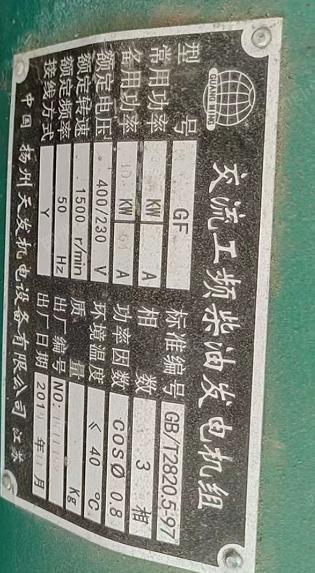 GUANG LING
交流工频柴油发电机组
型 号 GF 标准编号 GB/T2820.5-97
常用功率 KW A 相 数 3 相
备用功率 KW A 功率因数 COSØ 0.8
额定电压 400/230 V 环境温度 ≤ 40 ℃
额定转速 1500 r/min 质 量 Kg
额定频率 50 Hz 出厂编号 NO:
接线方式 Y 出厂日期 201 年 月
中国 扬州天发机电设备有限公司 江苏